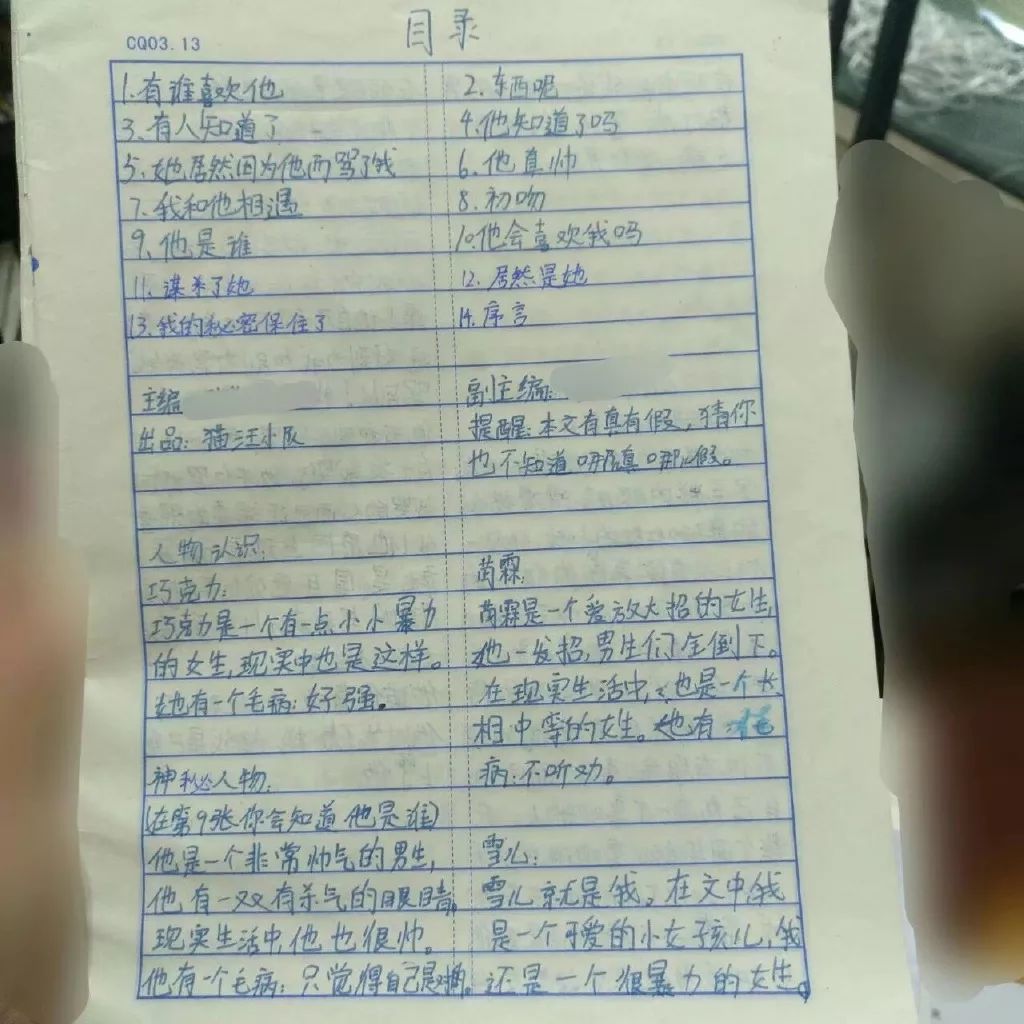 目录
CQ03.13
1.有谁喜欢他
2.东西呢
3.有人知道了
4.他知道了吗
5.她居然因为他而骂了我
6.他真帅
7.我和他相遇
8.初吻
9.他是谁
10.他会喜欢我吗
11.谋杀了她
12.居然是她
13.我的秘密保住了
14.序言
主编
副主编:
出品:猫汪小队
提醒:本文有真有假,猜你
也不知道哪儿真哪儿假。
人物认识:
巧克力:
巧克力是一个有一点小小暴力
的女生,现实中也是这样。
她有一个毛病:好强。
茵霖:
茵霖是一个爱放大招的女生,
她一发招,男生们全倒下。
在现实生活中,她也是一个长
相中等的女生。她有毛
病:不听劝。
神秘人物:
(在第9张你会知道他是谁)
他是一个非常帅气的男生,
他有一双有杀气的眼睛,
现实生活中他也很帅。
他有一个毛病:只觉得自己是对的。
雪儿:
雪儿就是我,在文中我
是一个可爱的小女孩儿,我
还是一个很暴力的女生。